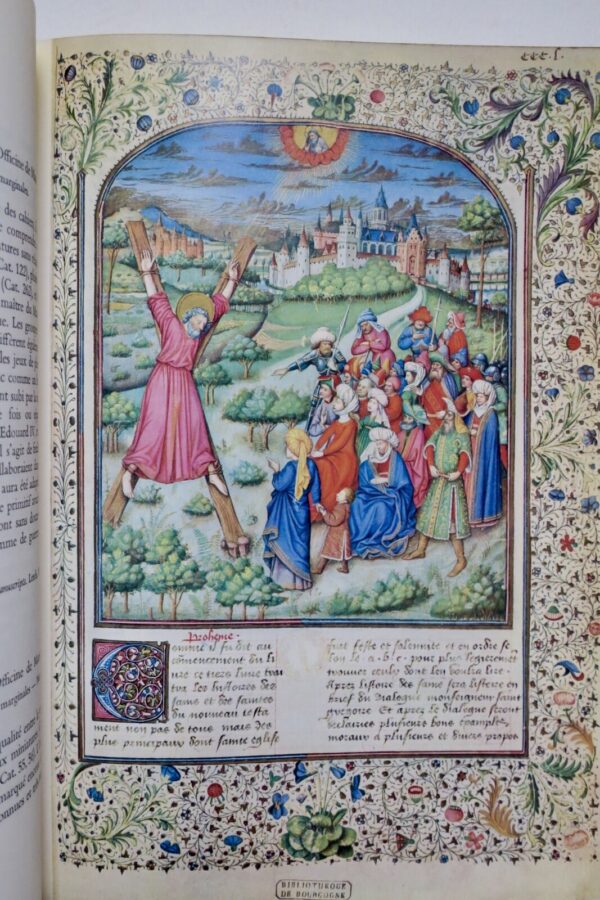 Officine de
marginales.
des cahiers,
comprend
tures sans
Cat. 122),
(Cat. 263),
maître du
ue. Les
ifférent
les jeux de
c comme un
nt subi par
e fois ou
Edouard IV,
l s'agit de
ollaboraient
aura été
e primitif
ont sans
mme de
manuscripts,
Officine de
marginales
qualité
ux
Cat. 55, 56)
marque
onnues et
ccc.l.
Proheme.
Comme il fu dit au
commencement du li
ure ce tiers liure trai
tra les histoires des
sains et des saintes
du nouueau testa
ment non pas de tous mais des
plus principaux dont sainte eglise
fait feste et solennite et en ordre se
lon l. a. b. c. pour plus legierement
trouuer ceulx dont len vouldra lire.
Apres listoire des sains sera listoire en
brief du dialogue monseigneur saint
gregoire Et apres le dialogue seront
declairies plusieurs bons exemples
moraux a plusieurs et diuers propos
BIBLIOTHEQUE
DE BOURGOGNE